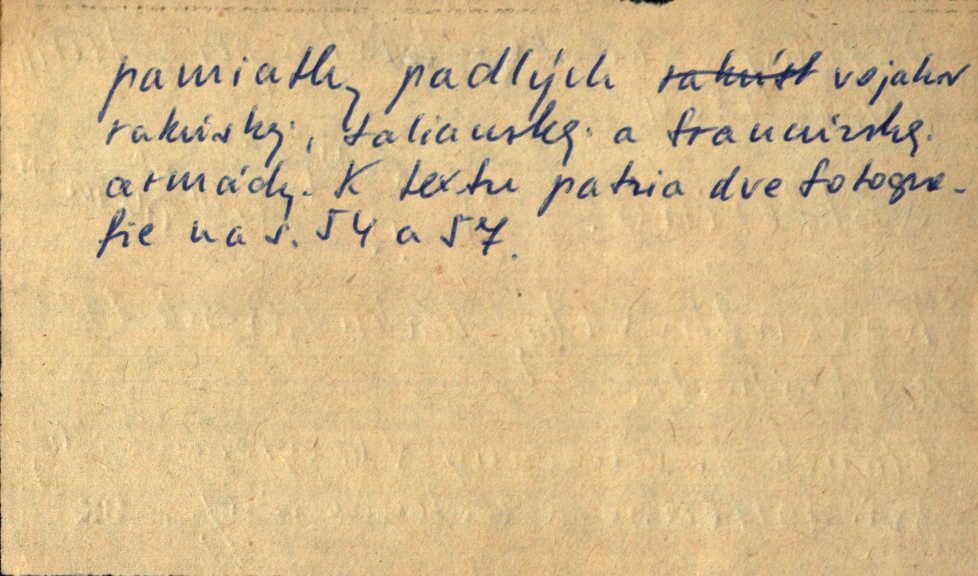 pamiatky padlých rakúsk vojakov
rakúskej, talianskej a francúzskej
armády. K textu patria dve fotogra-
fie na s. 54 a 57.